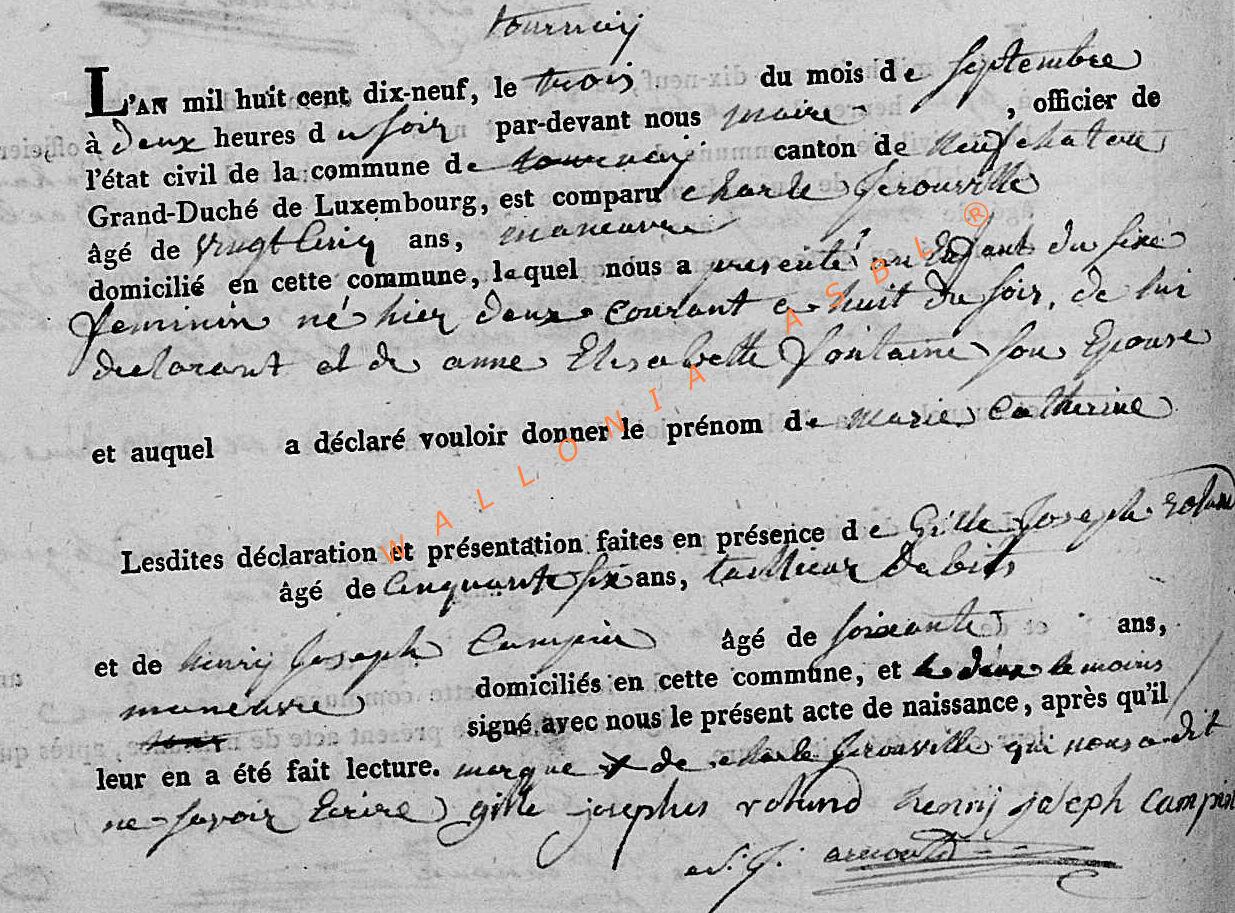 tournay
L'AN mil huit cent dix-neuf, le trois du mois de septembre
à deux heures du soir par-devant nous maire , officier de
l'état civil de la commune de tournay canton de neufchateau
Grand-Duché de Luxembourg, est comparu charle Gerouville
âgé de vingt cinq ans, maneuvre
domicilié en cette commune, lequel nous a presenté un Enfant du sixe
feminin né hier deux courant a huit du soir, de lui
declarant et de anne Elisabette fontaine son Epouse
et auquel a déclaré vouloir donner le prénom de marie Catherine
Lesdites déclaration et présentation faites en présence de Gille Joseph rolund
âgé de cinquante six ans, tallieur Dabits
et de henry Joseph Campin âgé de soixante ans,
maneuvre domiciliés en cette commune, et les deux temoins
signé avec nous le présent acte de naissance, après qu'il
leur en a été fait lecture. marque x de charle Gerouville qui nous a dit
ne savoir Ecrire gille josephus rolund henry joseph Campin
WALLONIA ASBL ®